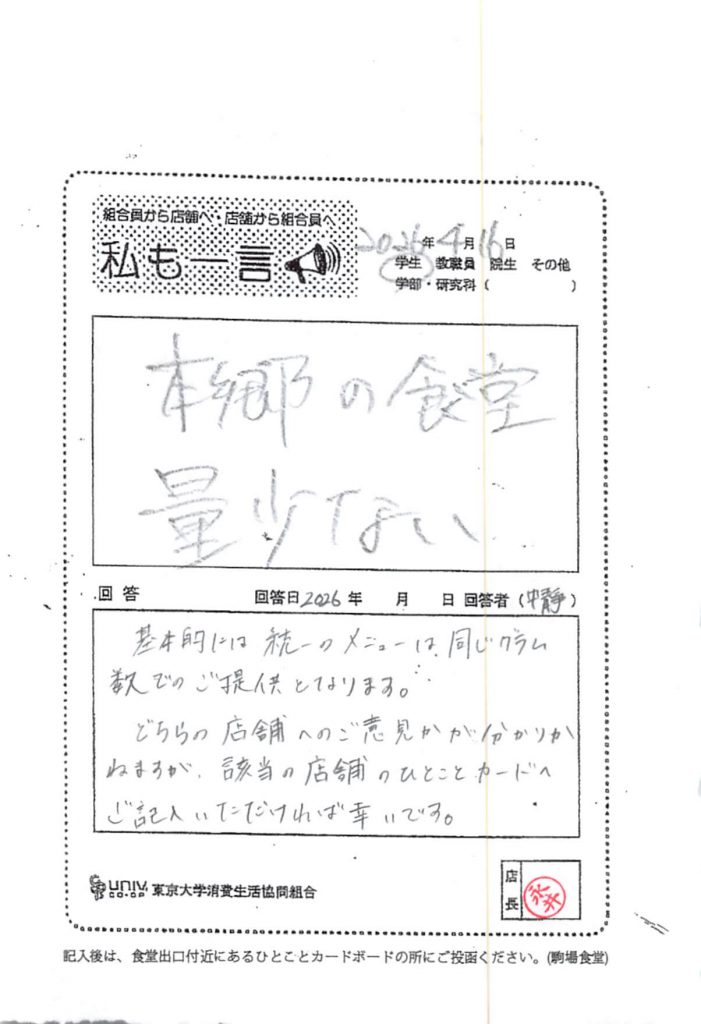 組合員から店舗へ・店舗から組合員へ
私も一言
2026年4月16日
学生 教職員 院生 その他
学部・研究科（　　　）
本郷の食堂
量少ない
回答 回答日2026年　月　日 回答者（中静）
基本的には統一のメニューは、同じグラム
数でのご提供となります。
どちらの店舗へのご意見かが分かりか
ねますが、該当の店舗のひとことカードへ
ご記入いただければ幸いです。
UNIV.
CO-OP
東京大学消費生活協同組合
店長
永井
記入後は、食堂出口付近にあるひとことカードボードの所にご投函ください。(駒場食堂)